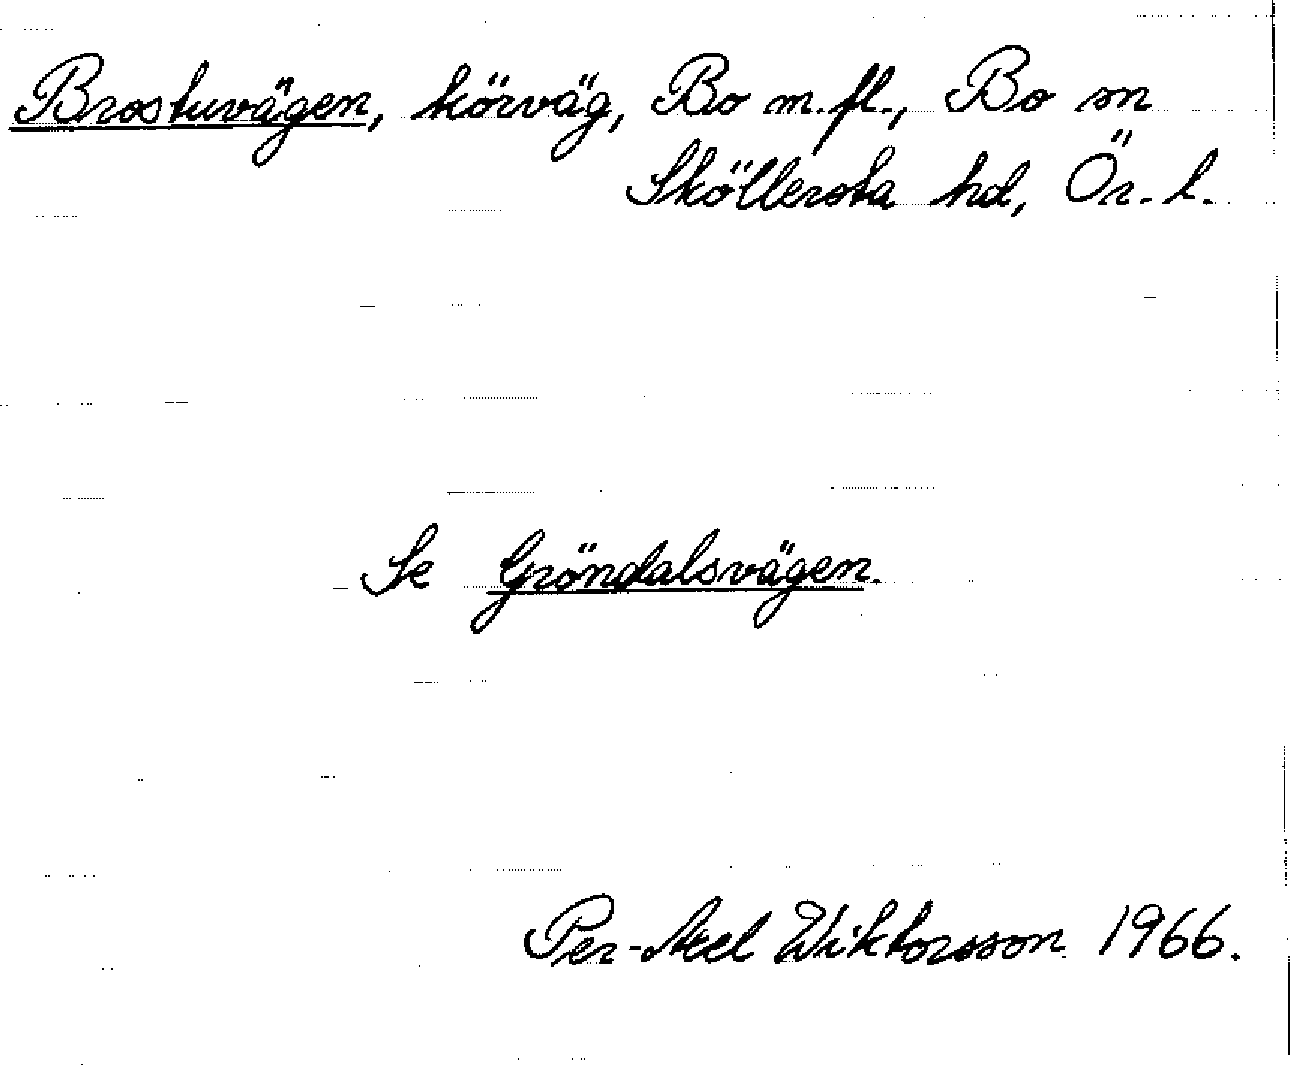 Brostuvägen, körväg, Bo m.fl., Bo sn
Sköllersta hd, Ör. l.
Se Gröndalsvägen.
Per-Axel Wiktorsson 1966.